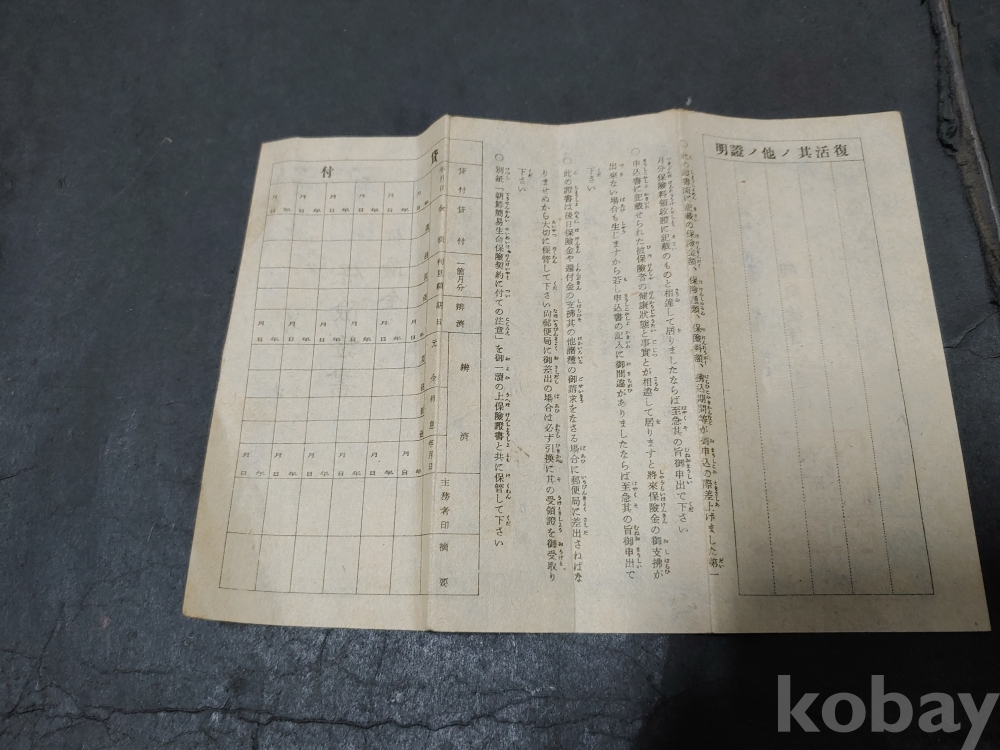 明證ノ他ノ其活復
○此の證書面に記載の保險金額、保險種類、保險料額、拂込期間等が御申込の際差上げました第一
月分保險料領收證に記載のものと相違して居りましたならば至急其の旨御申出で下さい
○申込書に記載せられた被保險者の健康狀態と事實とが相違して居りますと將來保險金の御支拂が
出來ない場合も生じますから若し申込書の記入に御間違がありましたならば至急其の旨御申出で
下さい
○此の證書は後日保險金や還付金の支拂其の他諸種の御請求をなさる場合に郵便局に差出さねばな
りませぬから大切に保管して下さい尚郵便局に御差出の場合は必ず引換に其の受領證を御受取り
下さい
○別紙「朝鮮簡易生命保險契約に付ての注意」を御一讀の上保險證書と共に保管して下さい
付 貸
貸付
貸付
一箇月分
辨濟
辨濟
主務者印
摘要
年月日
元金
年月日
年月日
年月日
年月日
年月日
kobay